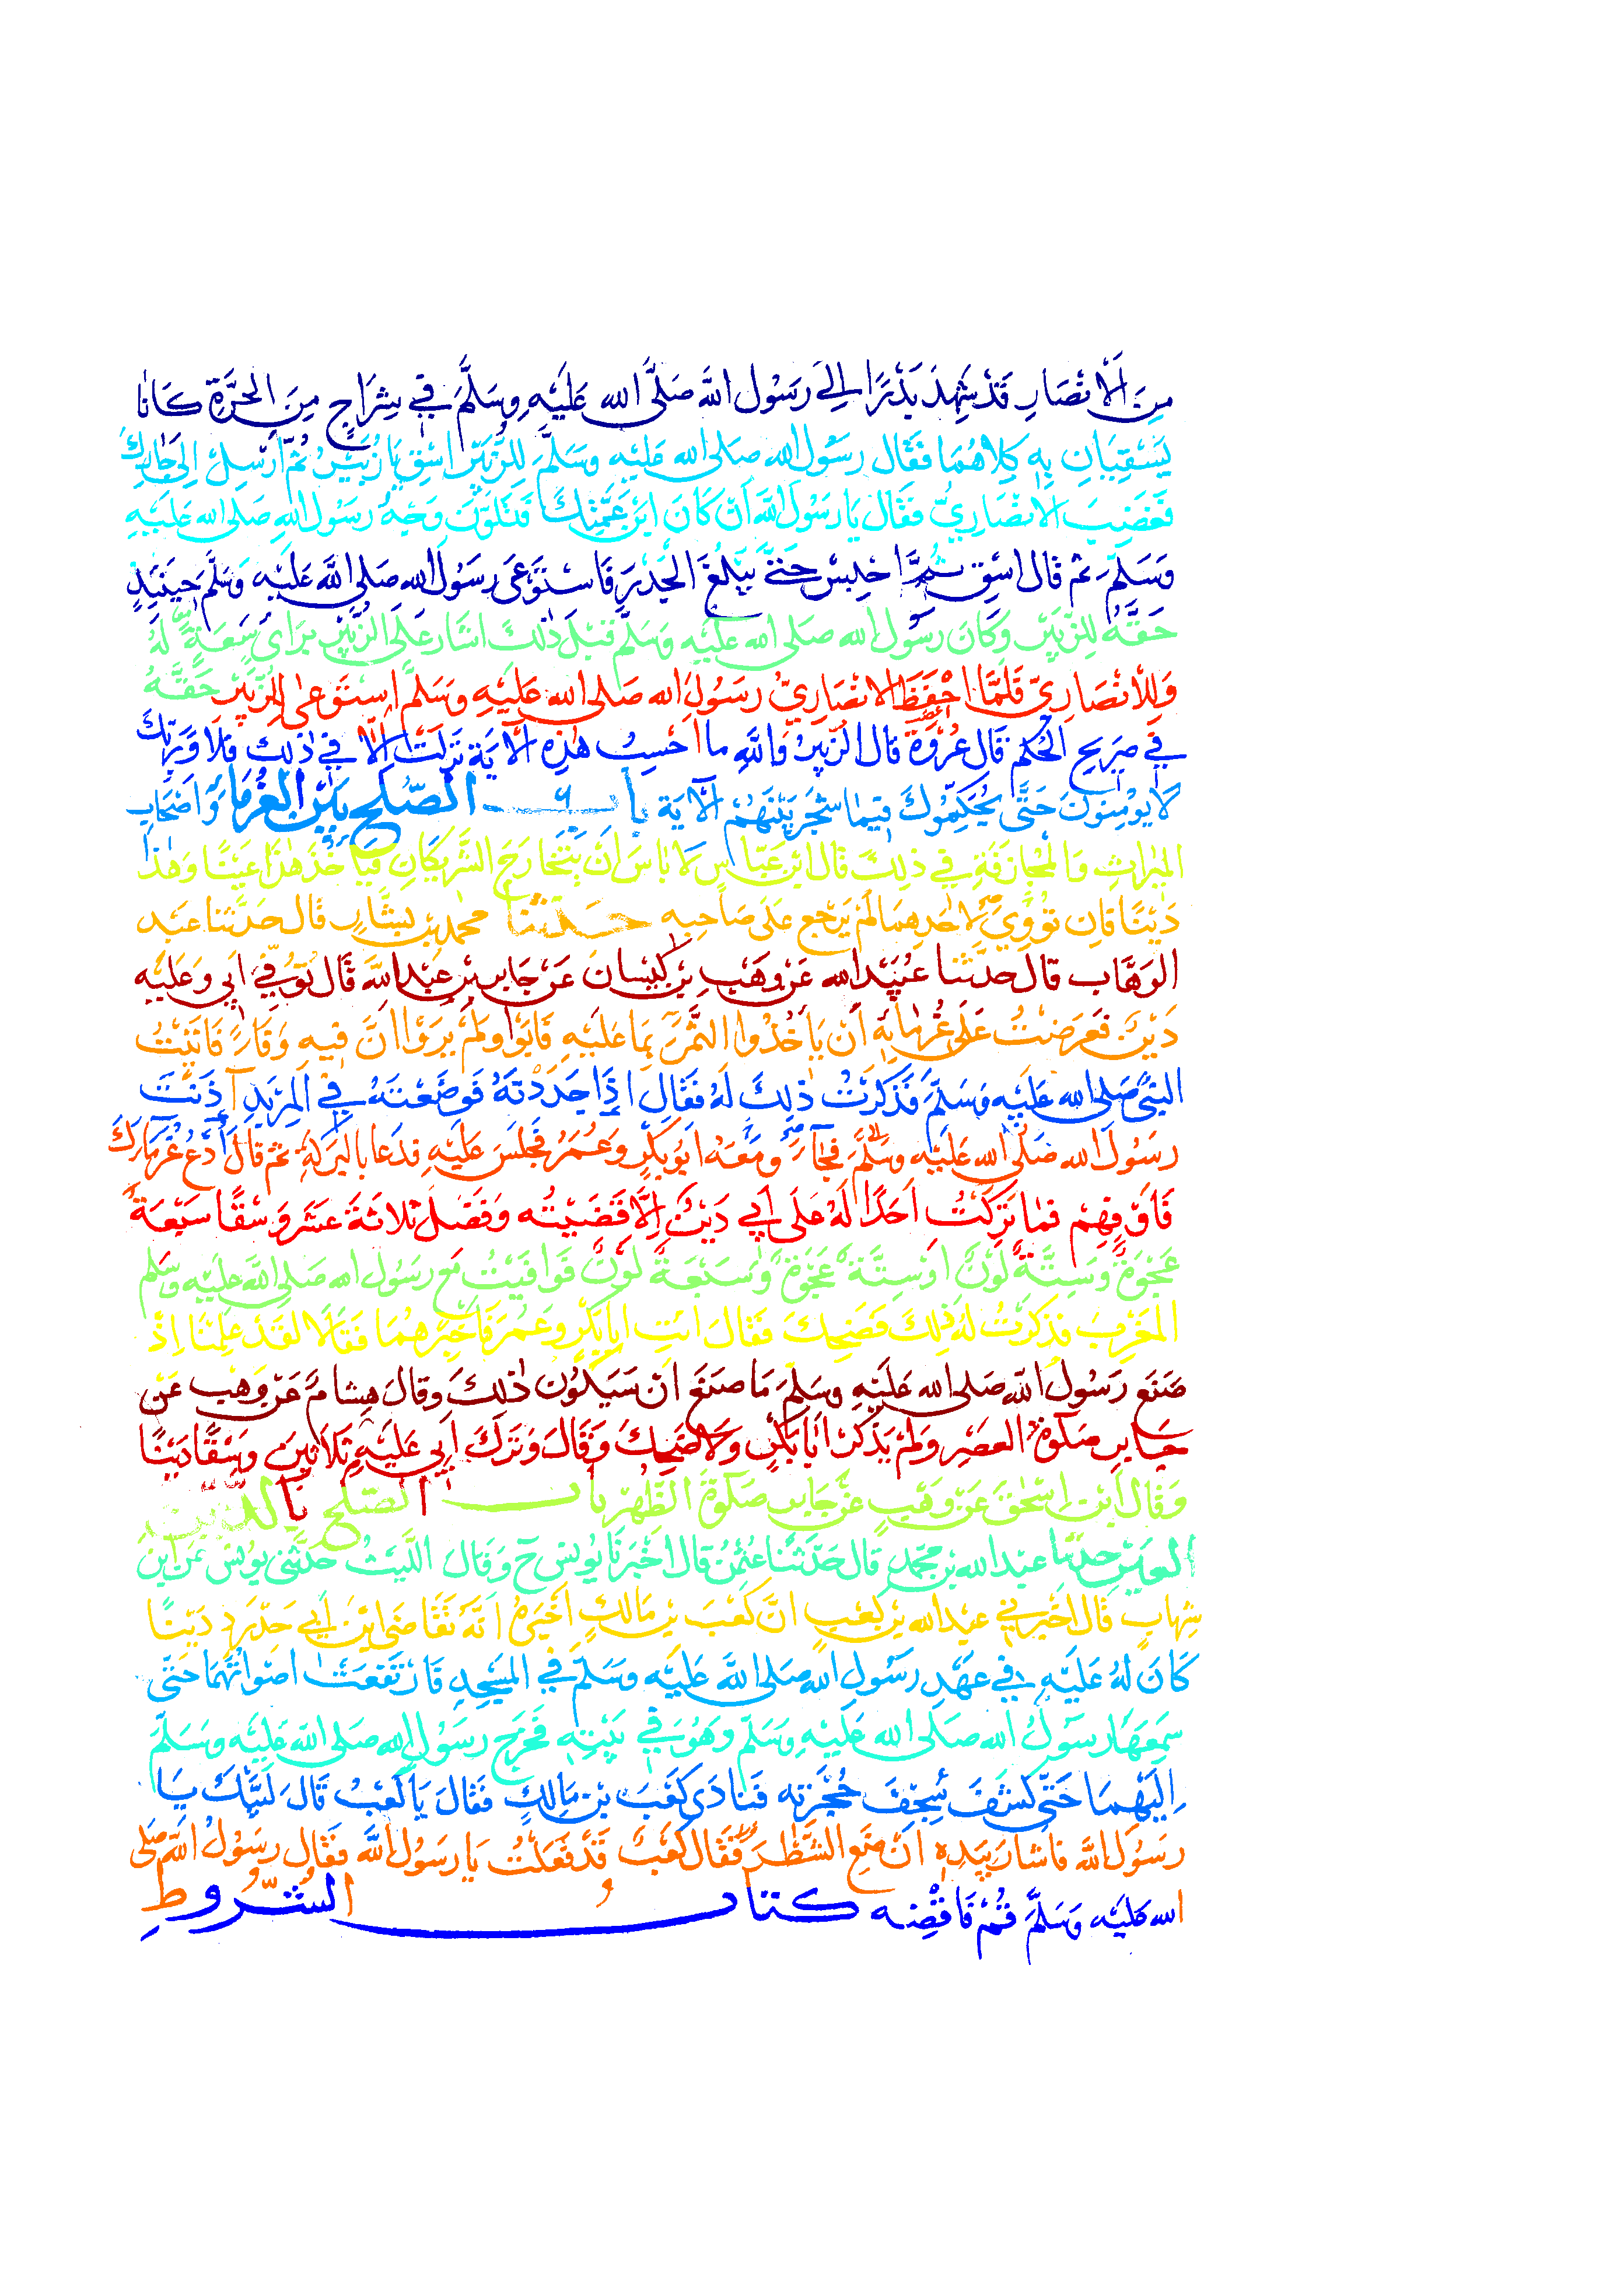 مِنَ الْاَنْصَارِ قَدْ شَهِدَ بَدْرًا اِلٰى رَسُوْلِ اللّٰهِ صَلَّى الله عَلَيْهِ وَسَلَّمَ فِيْ شِرَاجٍ مِنَ الْحَرَّةِ كَانَا
يَسْقِيَانِ بِهٖ كِلَاهُمَا فَقَال رَسُوْلُ الله صَلى الله عَلَيْهِ وَسَلَّمَ لِلزُّبَيْرِ اسْقِ يَا زُبَيْرُ ثُمَّ اَرْسِلْ اِلٰى جَارِكَ
فَغَضِبَ الْاَنْصَارِيُّ فَقَال يَا رَسُوْلَ اللهِ اَنْ كَانَ ابْنَ عَمَّتِكَ فَتَلَوَّنَ وَجْهُ رَسُوْلِ اللهِ صَلى الله عَلَيْهِ
وَسَلَّمَ ثُمَّ قَال اسْقِ ثُمَّ احْبِسْ حَتّٰى يَبْلُغَ الْجَدْرَ فَاسْتَوْعَى رَسُوْلُ الله صَلى الله عَلَيْهِ وَسَلَّمَ حِيْنَئِذٍ
حَقَّهٗ لِلزُّبَيْرِ وَكَانَ رَسُوْلُ الله صَلى الله عَلَيْهِ وَسَلَّمَ قَبْلَ ذٰلِكَ اشَارَ عَلَى الزُّبَيْرِ بِرَأيٍ سَعَةٍ لَهٗ
وَلِلْاَنْصَارِيّ فَلَمَّا احْفَظَ الْاَنْصَارِيُّ رَسُوْلَ الله صَلى الله عَلَيْهِ وَسَلَّمَ اسْتَوْعى لِلزُّبَيْرِ حَقَّهٗ
فِيْ صَرِيْحِ الْحُكْمِ قَال عُرْوَةُ قَال الزُّبَيْرُ وَاللهِ ما احْسِبُ هٰذِهِ الْاٰيَةَ نَزَلَتْ اِلَّا فِيْ ذٰلِكَ فَلَا وَرَبِّكَ
لَا يُوْمِنُوْنَ حَتّٰى يُحَكِّمُوْكَ فِيْمَا شَجَرَ بَيْنَهُمْ الْاٰيَةَ بابُ الصُّلْحِ بَيْنَ الْغُرَمَاءِ وَاَصْحَابِ
الْمِيْرَاثِ وَالْمُجَازَفَةِ فِي ذٰلِكَ قَالَ ابْن عَبَّاسٍ لَا بَاْسَ اَنْ يَتَخَارَجَ الشَّرِيْكَانِ فَيَاْخُذَ هٰذَا عَيْنًا وَهٰذَا
دَيْنًا فَاِن تَوِيَ لِاَحَدِهِمَا لَمْ يَرْجِعْ عَلٰى صَاحِبِهٖ حدثنا محمد بن بَشَّارٍ قَال حَدَّثَنا عَبْد
الوَهَّاب قَال حَدَّثَنا عُبَيْد الله عَنْ وَهْبِ بْنِ كَيْسَانَ عَنْ جَابِرِ بْنِ عَبْدِ اللهِ قَال تُوُفِّيَ اَبِي وَعَلَيْهِ
دَيْنٌ فَعَرَضْتُ عَلٰى غُرَمَائِهٖ اَنْ يَاخُذُوا التَّمْرَ بِمَا عَلَيْهِ فَاَبَوْا وَلَمْ يَرَوْا اَنَّ فِيْهِ وَفَاءً فَاَتَيْتُ
النَّبِيَّ صَلى الله عَلَيْهِ وَسَلَّمَ فَذَكَرْتُ ذٰلِكَ لَهٗ فَقَال اِذَا جَدَدْتَهٗ فَوَضَعْتَهٗ فِي الْمِرْبَدِ اٰذَنْتَ
رَسُوْلَ الله صَلَّى الله عَلَيْهِ وَسَلَّمَ فَجَاءَ وَمَعَهٗ اَبُوْ بَكْرٍ وَعُمَرُ فَجَلَسَ عَلَيْهِ فَدَعَا بِالْبَرَكَةِ ثُمَّ قَالَ ادْعُ غُرَمَاءَكَ
فَاَوْفِهِمْ فَمَا تَرَكْتُ اَحَدًا لَهٗ عَلَى اَبِيْ دَيْنٌ اِلَّا قَضَيْتُه وَفَضَلَ ثَلَاثَةَ عَشَرَ وَسْقًا سَبْعَةٌ
عَجْوَةٌ وَسِتَّةٌ لَوْنٌ اَوْ سِتَّةٌ عَجْوَةٌ وَسَبْعَةٌ لَوْنٌ فَوَافَيْتُ مَعَ رَسُوْل الله صَلى الله عَلَيْهِ وَسَلم
الْمَغْرِبَ فَذَكَرْتُ لَهٗ ذٰلِكَ فَضَحِكَ فَقَالَ ائْتِ اَبَا بَكْرٍ وَعُمَرَ فَاَخْبِرْهُمَا فَقَالَا لَقَدْ عَلِمْنَا اِذْ
صَنَعَ رَسُوْلُ الله صَلى الله عَلَيْهِ وَسَلَّمَ مَا صَنَعَ اَنْ سَيَكُوْن ذٰلِكَ وَقَالَ هِشامٌ عَنْ وَهْبٍ عَنْ
جَابِرٍ صَلٰوةَ العصْرِ وَلَمْ يَذْكُرْ اَبَا بَكْرٍ وَلَا ضَحِكَ وَقَالَ وَتَرَكَ اَبِي عَلَيْهِ ثَلَاثِيْنَ وَسْقًا دَيْنًا
وَقَال ابْن اِسْحٰقَ عَنْ وَهْبٍ عَنْ جَابِرٍ صَلٰوةَ الظُّهْرِ باب الصُّلْحِ بالدَّيْنِ
والعَيْنِ حدثنا عبد الله بن محمَّدٍ قَال حَدَّثَنَا عُثْمٰنُ قَال اَخْبَرَنَا يُونُسُ ح وَقَال اللَّيْثُ حَدَّثَنِي يُوْنُسُ عَنِ ابْنِ
شِهَابٍ قَال اَخْبَرَنِيْ عَبْد الله بْن كَعْبٍ اَنَّ كَعْبَ بْن مَالِكٍ اَخْبَرَهٗ اَنَّهٗ تَقَاضَى ابْنَ اَبِي حَدْرَدٍ دَيْنًا
كَانَ لَهٗ عَلَيْهِ فِي عَهْدِ رَسُوْلِ الله صَلى الله عَلَيْهِ وَسَلَّمَ فِي المَسْجِدِ فَارْتَفَعَتْ اَصْوَاتُهُمَا حَتّٰى
سَمِعَهَا رَسُوْلُ الله صَلَّى الله عَلَيْهِ وَسَلَّمَ وَهُوَ فِي بَيْتِهٖ فَخَرَجَ رَسُوْل الله صَلى الله عَلَيْهِ وَسَلَّمَ
اِلَيْهِمَا حَتّٰى كَشَفَ سِجْفَ حُجْرَتِه فَنَادَى كَعْبَ بْن مَالِكٍ فَقَالَ يَا كَعْبُ قَالَ لَبَّيْكَ يَا
رَسُوْلَ الله فَاَشَارَ بِيَدِهٖ اَنْ ضَعِ الشَّطْرَ فَقَال كَعْبٌ قَدْ فَعَلْتُ يَا رَسُوْلَ اللهِ فَقَال رَسُوْلُ اللهِ صَلى
الله عَلَيْهِ وَسَلَّمَ قُمْ فَاقْضِه كتابُ الشُّرُوطِ